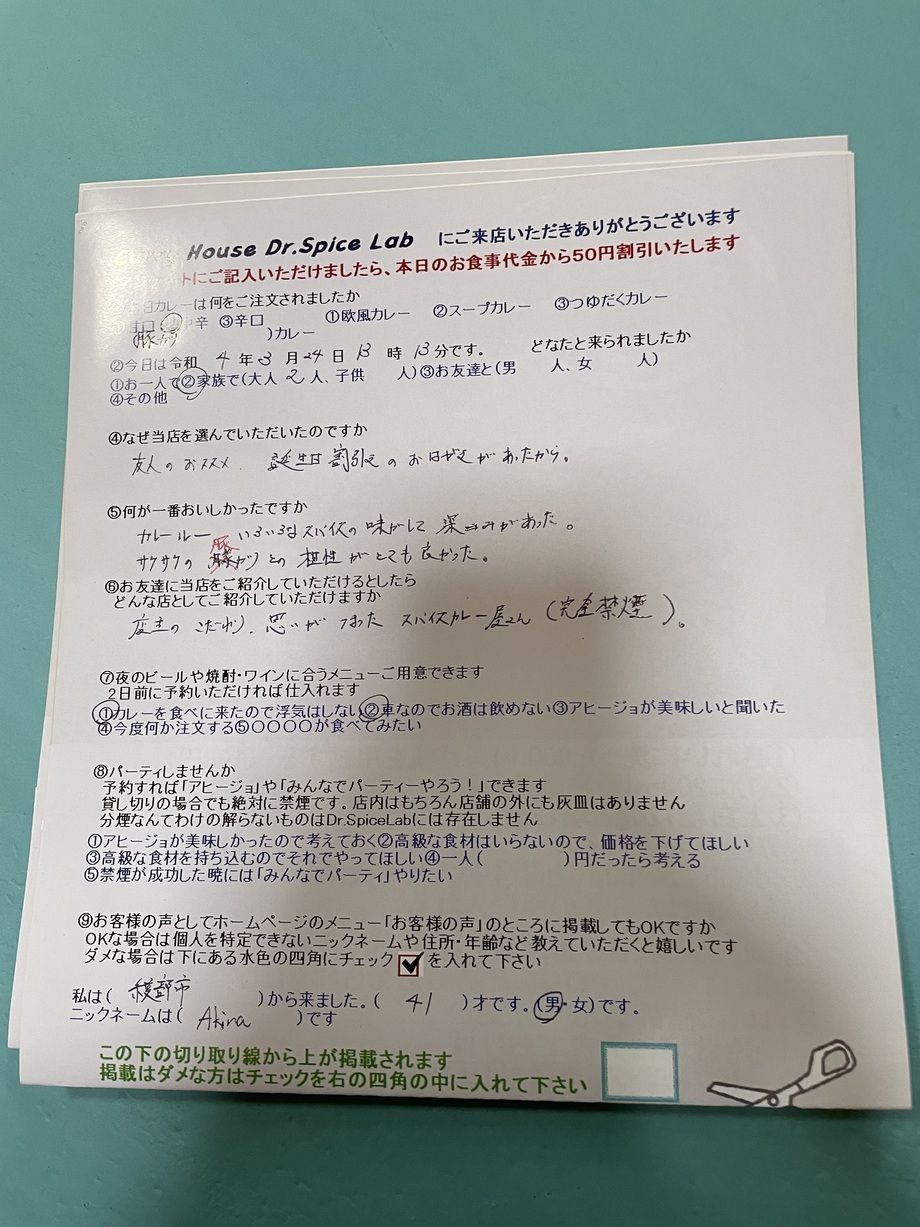 House Dr.Spice Lab にご来店いただきありがとうございます
トにご記入いただけましたら、本日のお食事代金から50円割引いたします
日カレーは何をご注文されましたか
中辛 ③辛口 ①欧風カレー ②スープカレー ③つゆだくカレー
)カレー
②今日は令和 4 年 3 月 24 日 13 時 13 分です。 どなたと来られましたか
①お一人で②家族で(大人 2 人、子供 人)③お友達と(男 人、女 人)
④その他
④なぜ当店を選んでいただいたのですか
友人のおススメ、誕生日割引きのおはがきがあったから。
⑤何が一番おいしかったですか
カレールー いろいろなスパイスの味がして深みがあった。
サクサクの 豚カツとの相性がとても良かった。
⑥お友達に当店をご紹介していただけるとしたら
どんな店としてご紹介していただけますか
店主のこだわり、思いがつまったスパイスカレー屋さん(完全禁煙)。
⑦夜のビールや焼酎・ワインに合うメニューご用意できます
2日前に予約いただければ仕入れます
①カレーを食べに来たので浮気はしない②車なのでお酒は飲めない③アヒージョが美味しいと聞いた
④今度何か注文する⑤〇〇〇〇が食べてみたい
⑧パーティしませんか
予約すれば「アヒージョ」や「みんなでパーティーやろう!」できます
貸し切りの場合でも絶対に禁煙です。店内はもちろん店舗の外にも灰皿はありません
分煙なんてわけの解らないものはDr.SpiceLabには存在しません
①アヒージョが美味しかったので考えておく②高級な食材はいらないので、価格を下げてほしい
③高級な食材を持ち込むのでそれでやってほしい④一人( )円だったら考える
⑤禁煙が成功した暁には「みんなでパーティ」やりたい
⑨お客様の声としてホームページのメニュー「お客様の声」のところに掲載してもOKですか
OKな場合は個人を特定できないニックネームや住所・年齢など教えていただくと嬉しいです
ダメな場合は下にある水色の四角にチェック を入れて下さい
私は( 綾部市 )から来ました。( 41 )才です。(男・女)です。
ニックネームは( Akira )です
この下の切り取り線から上が掲載されます
掲載はダメな方はチェックを右の四角の中に入れて下さい